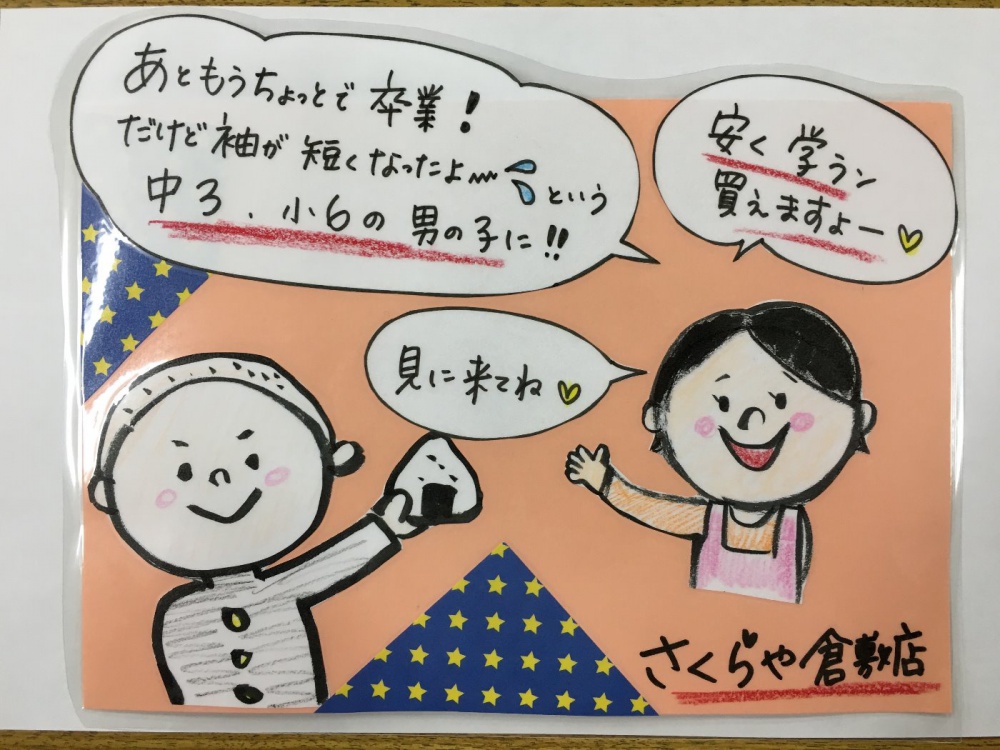 あともうちょっとで卒業！
だけど袖が短くなったよ〰という
中3、小6の男の子に!!
安く学ラン
買えますよー
見に来てね
さくらや倉敷店